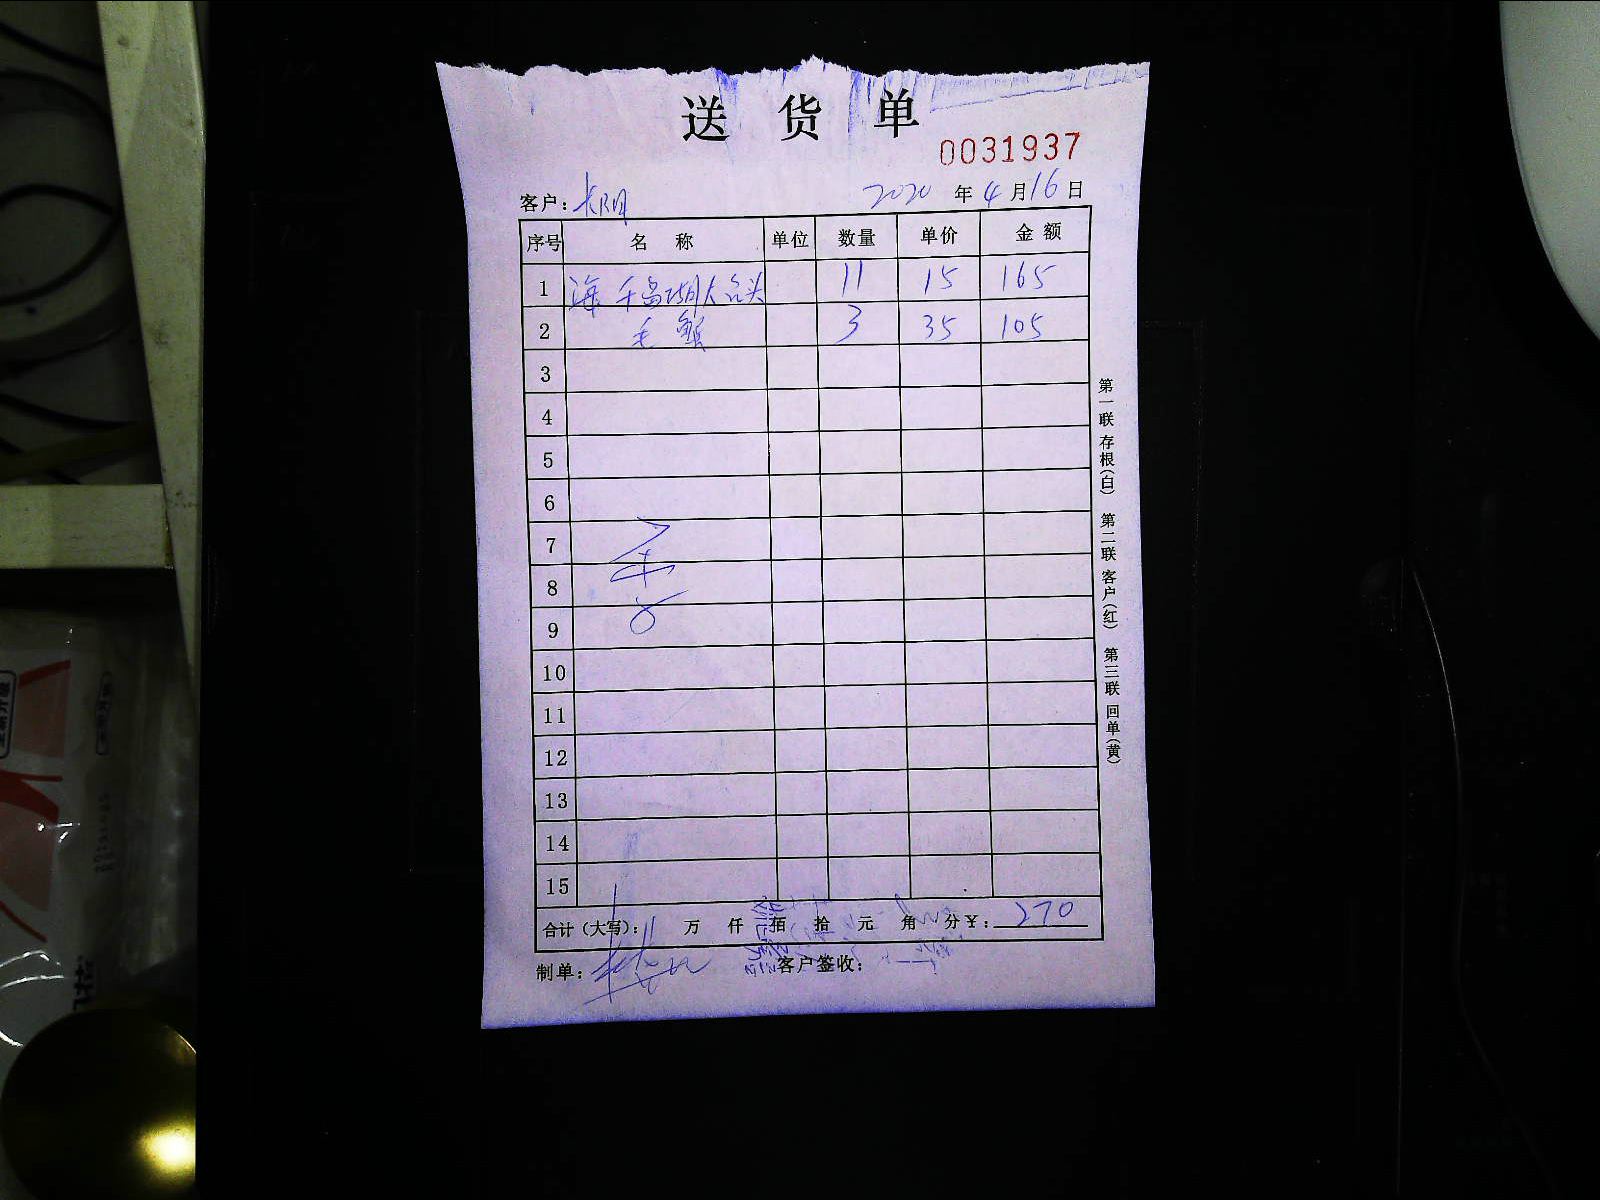 送 货 单
0031937
客户: 长阳 2020 年 4 月 16 日
序号 名 称 单位 数量 单价 金 额
1 海 千岛湖大鱼头 11 15 165
2 毛蟹 3 35 105
3
4
5
6
7
8
9
10
11
12
13
14
15
合计（大写）： 万 仟 佰 拾 元 角 分 ¥： 270
制单： 客户签收：
第一联 存根（白） 第二联 客户（红） 第三联 回单（黄）